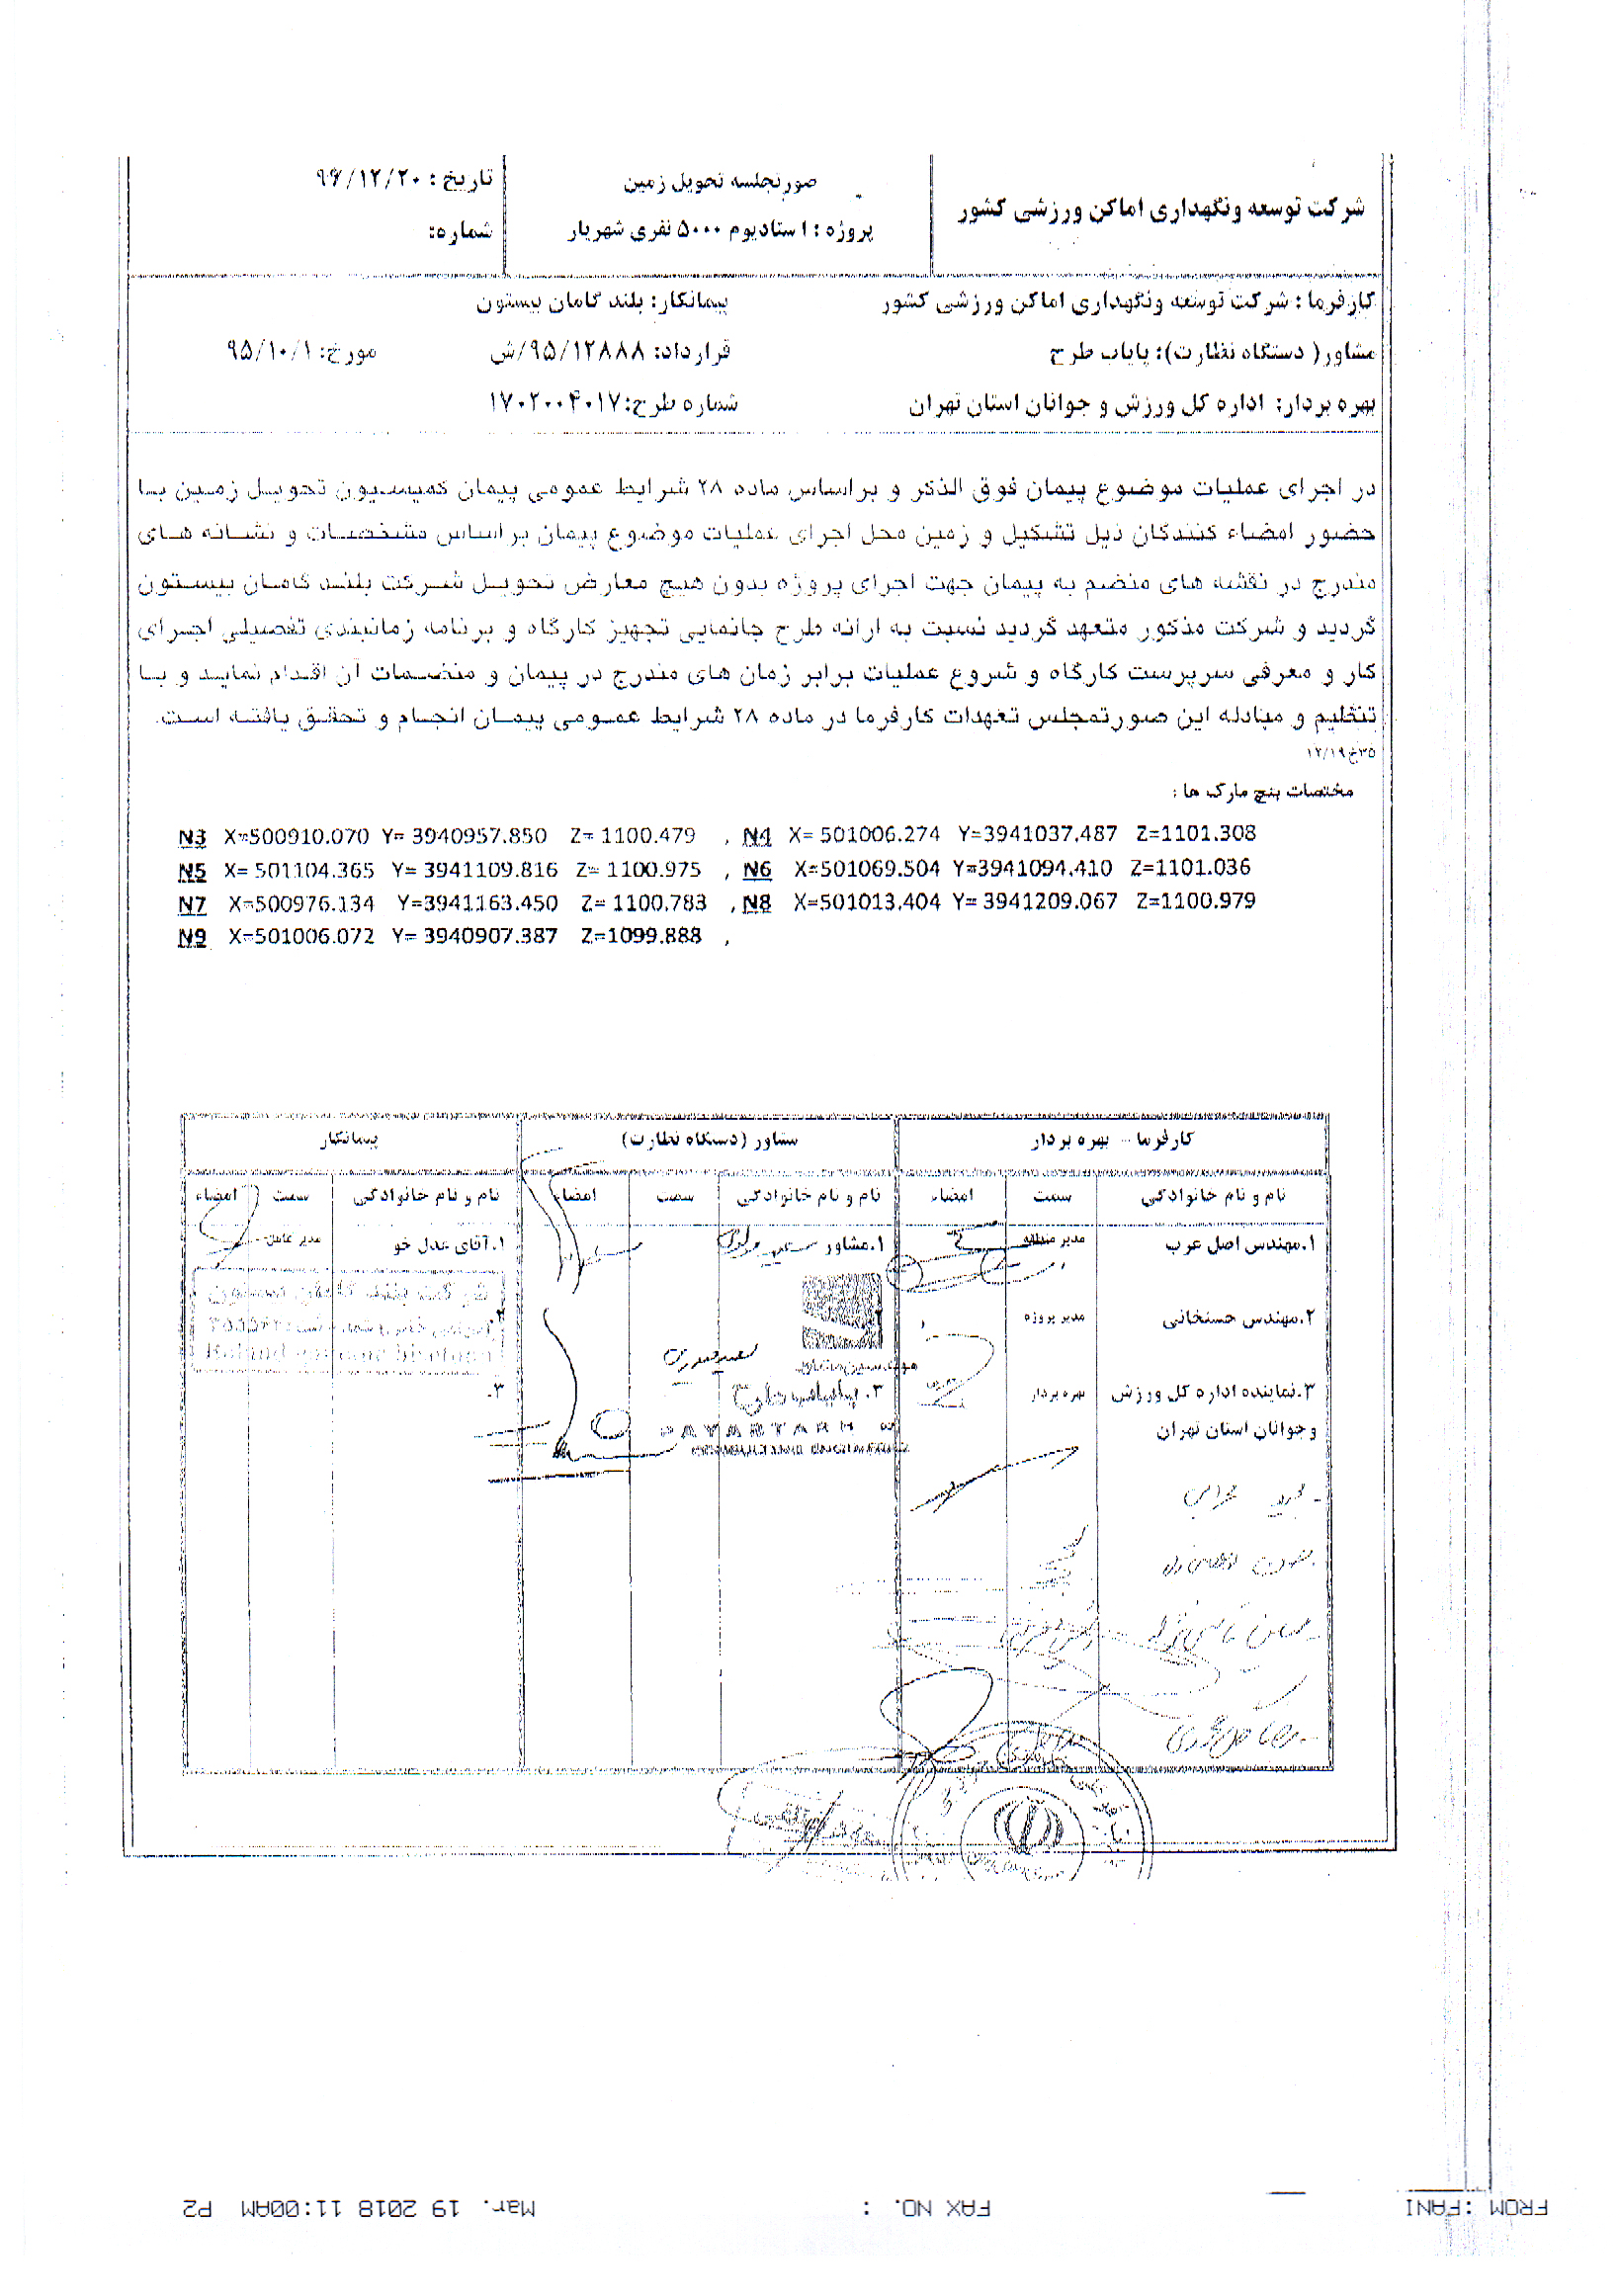 شرکت توسعه ونگهداری اماکن ورزشی کشور
صورتجلسه تحویل زمین
پروژه : استادیوم ۵۰۰۰ نفری شهریار
تاریخ : ۹۶/۱۲/۲۰
شماره:
کارفرما : شرکت توسعه ونگهداری اماکن ورزشی کشور پیمانکار: بلند گامان بیستون
مشاور( دستگاه نظارت): پایاب طرح قرارداد: ۹۵/۱۲۸۸۸/ش مورخ: ۹۵/۱۰/۱
بهره بردار: اداره کل ورزش و جوانان استان تهران شماره طرح:۱۷۰۲۰۰۴۰۱۷
در اجرای عملیات موضوع پیمان فوق الذکر و براساس ماده ۲۸ شرایط عمومی پیمان کمیسیون تحویل زمین با
حضور امضاء کنندگان ذیل تشکیل و زمین محل اجرای عملیات موضوع پیمان براساس مشخصات و نشانه های
مندرج در نقشه های منضم به پیمان جهت اجرای پروژه بدون هیچ معارض تحویل شرکت بلند گامان بیستون
گردید و شرکت مذکور متعهد گردید نسبت به ارائه طرح جانمایی تجهیز کارگاه و برنامه زمانبندی تفصیلی اجرای
کار و معرفی سرپرست کارگاه و شروع عملیات برابر زمان های مندرج در پیمان و منضمات آن اقدام نماید و با
تنظیم و مبادله این صورتمجلس تعهدات کارفرما در ماده ۲۸ شرایط عمومی پیمان انجام و تحقق یافته است.
۳۵خ۱۲/۱۹
مختصات بنچ مارک ها :
N3 X=500910.070 Y= 3940957.850 Z= 1100.479 , N4 X= 501006.274 Y=3941037.487 Z=1101.308
N5 X= 501104.365 Y= 3941109.816 Z= 1100.975 , N6 X=501069.504 Y=3941094.410 Z=1101.036
N7 X=500976.134 Y=3941163.450 Z= 1100.783 , N8 X=501013.404 Y= 3941209.067 Z=1100.979
N9 X=501006.072 Y= 3940907.387 Z=1099.888 ,
کارفرما - بهره بردار مشاور (دستگاه نظارت) پیمانکار
نام و نام خانوادگی سمت امضاء نام و نام خانوادگی سمت امضاء نام و نام خانوادگی سمت امضاء
۱.مهندس اصل عرب مدیر منطقه ۱.مشاور ۱.آقای عدل خو مدیر عامل
۲.مهندس حسنخانی مدیر پروژه ۲.
مهندسین مشاور
۳.نماینده اداره کل ورزش بهره بردار ۳. پایاب طرح ۳.
و جوانان استان تهران
PAYABTARH
CONSULTING ENGINEERS
FROM :FANI FAX NO. : Mar. 19 2018 11:00AM P2